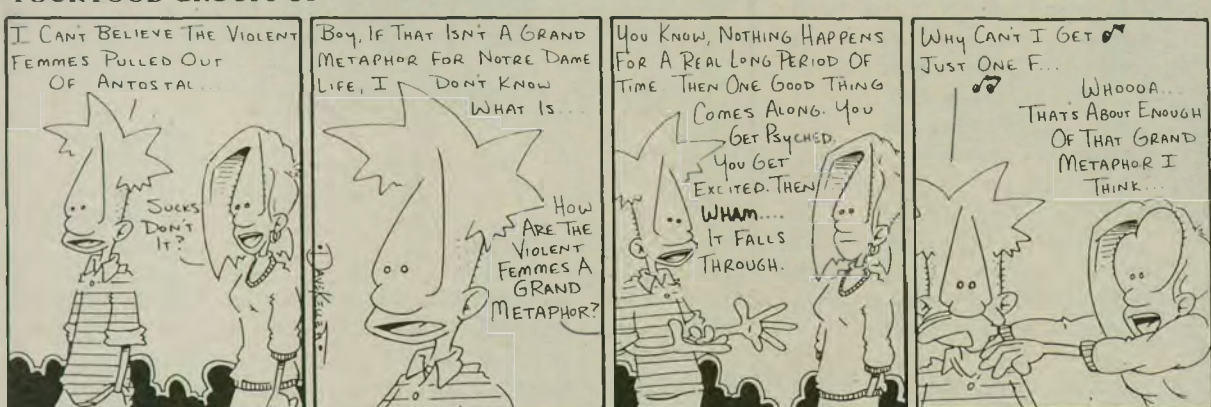 I CAN'T BELIEVE THE VIOLENT
FEMMES PULLED OUT
OF ANTOSTAL....
SUCKS
DON'T
IT?
BOY, IF THAT ISN'T A GRAND
METAPHOR FOR NOTRE DAME
LIFE, I DON'T KNOW
WHAT IS....
HOW
ARE THE
VIOLENT
FEMMES A
GRAND
METAPHOR?
DAVE KELLETT
YOU KNOW, NOTHING HAPPENS
FOR A REAL LONG PERIOD OF
TIME. THEN ONE GOOD THING
COMES ALONG. YOU
GET PSYCHED.
YOU GET
EXCITED. THEN
WHAM....
IT FALLS
THROUGH.
WHY CAN'T I GET
JUST ONE F...
WHOOOA...
THAT'S ABOUT ENOUGH
OF THAT GRAND
METAPHOR I
THINK...